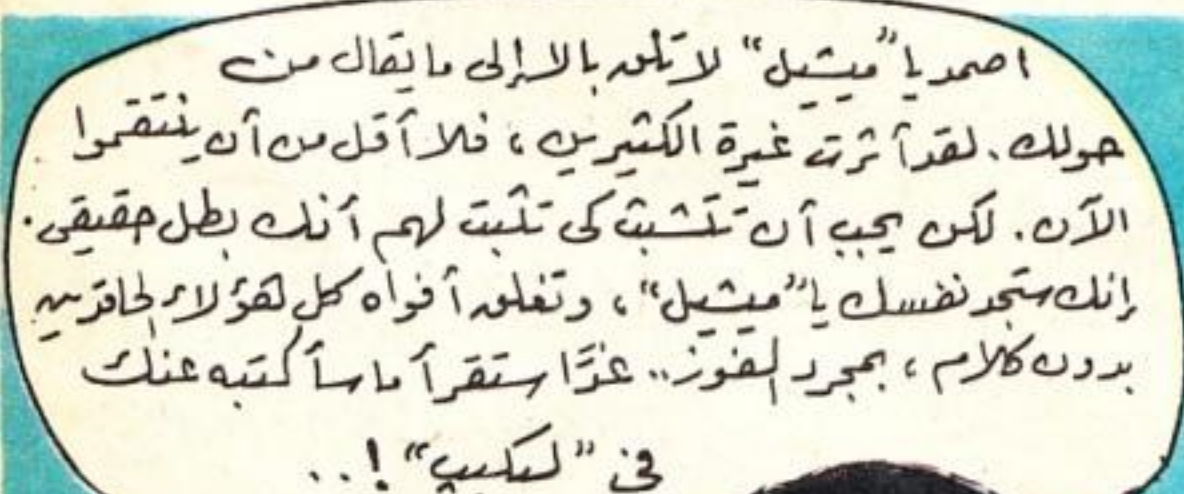 اصمد يا "ميشيل" لا تلق بالا إلى ما يقال من
حولك. لقد أثرت غيرة الكثيرين، فلا أقل من أن ينتقموا
الآن. لكن يجب أن تتشبث كى تثبت لهم أنك بطل حقيقى.
إنك ستجد نفسك يا "ميشيل"، وتغلق أفواه كل هؤلاء الحاقدين
بدون كلام، بمجرد الفوز.. غدًا ستقرأ ما سأكتبه عنك
فى "ليكيب"!..